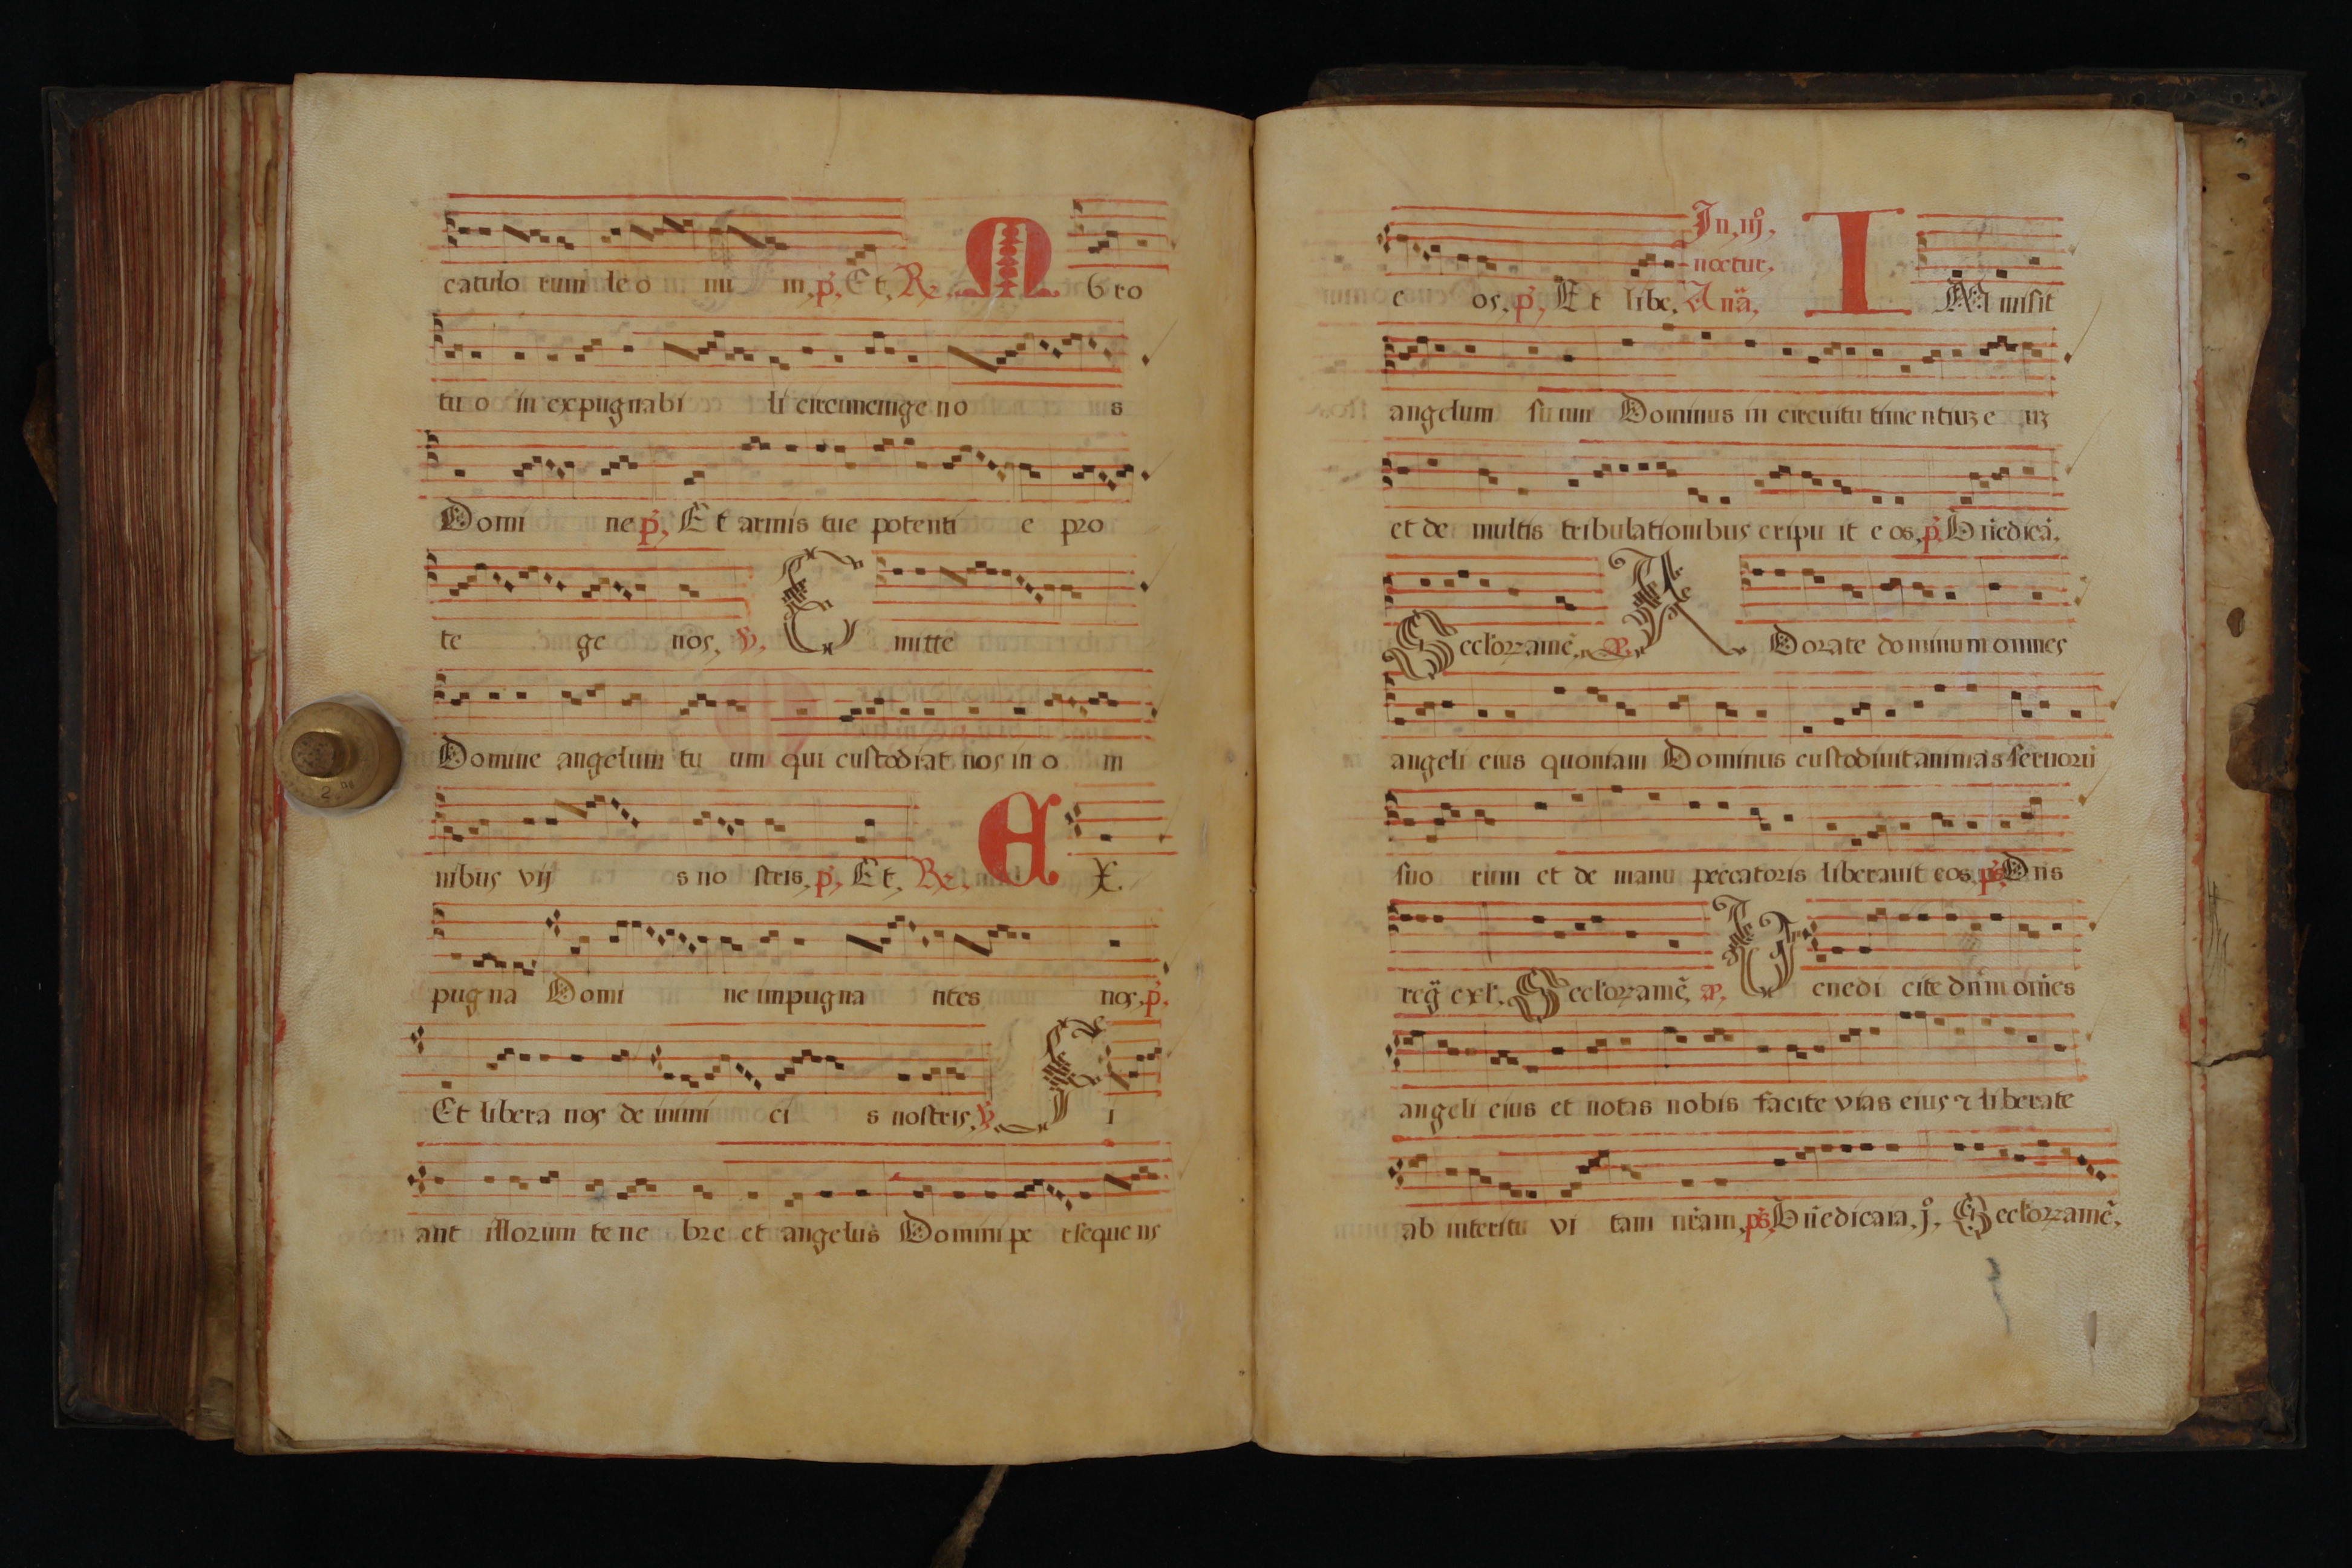 catulo rum leo ni m, p̃, Et, R̃. M Bro
tuo in expugnabi li circumcinge no s
Domi ne p̃, Et armis tue potenti e pro
te ge nos, v̄, E mitte
Domine angelum tu um qui custodiat nos in o m
nibus vij s no stris, p̃, Et, R̃. E X.
pugna Domi ne impugna ntes nos, p̃,
Et libera nos de inimi ci s nostris, v̄, F i
ant illorum tene bre et angelus Domini pe rseque ns
In, iij,
noctur,
e os, p̃, Et libe, Anã, I MMisit
angelum suum Dominus in circuitu timentiuz e uz
et de multis tribulationibus eripu it e os, p̃, Bñedicã,
Seclorzamẽ, A Dorate dominum omnes
angeli eius quoniam Dominus custodiuit animas seruorũ
suo rum et de manu peccatoris liberauit eos, p̃s, Dns
reg̃ exl, Seclorzamẽ, B enedi cite dñm om̃es
angeli eius et notas nobis facite vias eius ⁊ liberate
ab interitu vi tam nr̃am, p̃s, Bñedicaia, j, Seclorzamẽ,
2